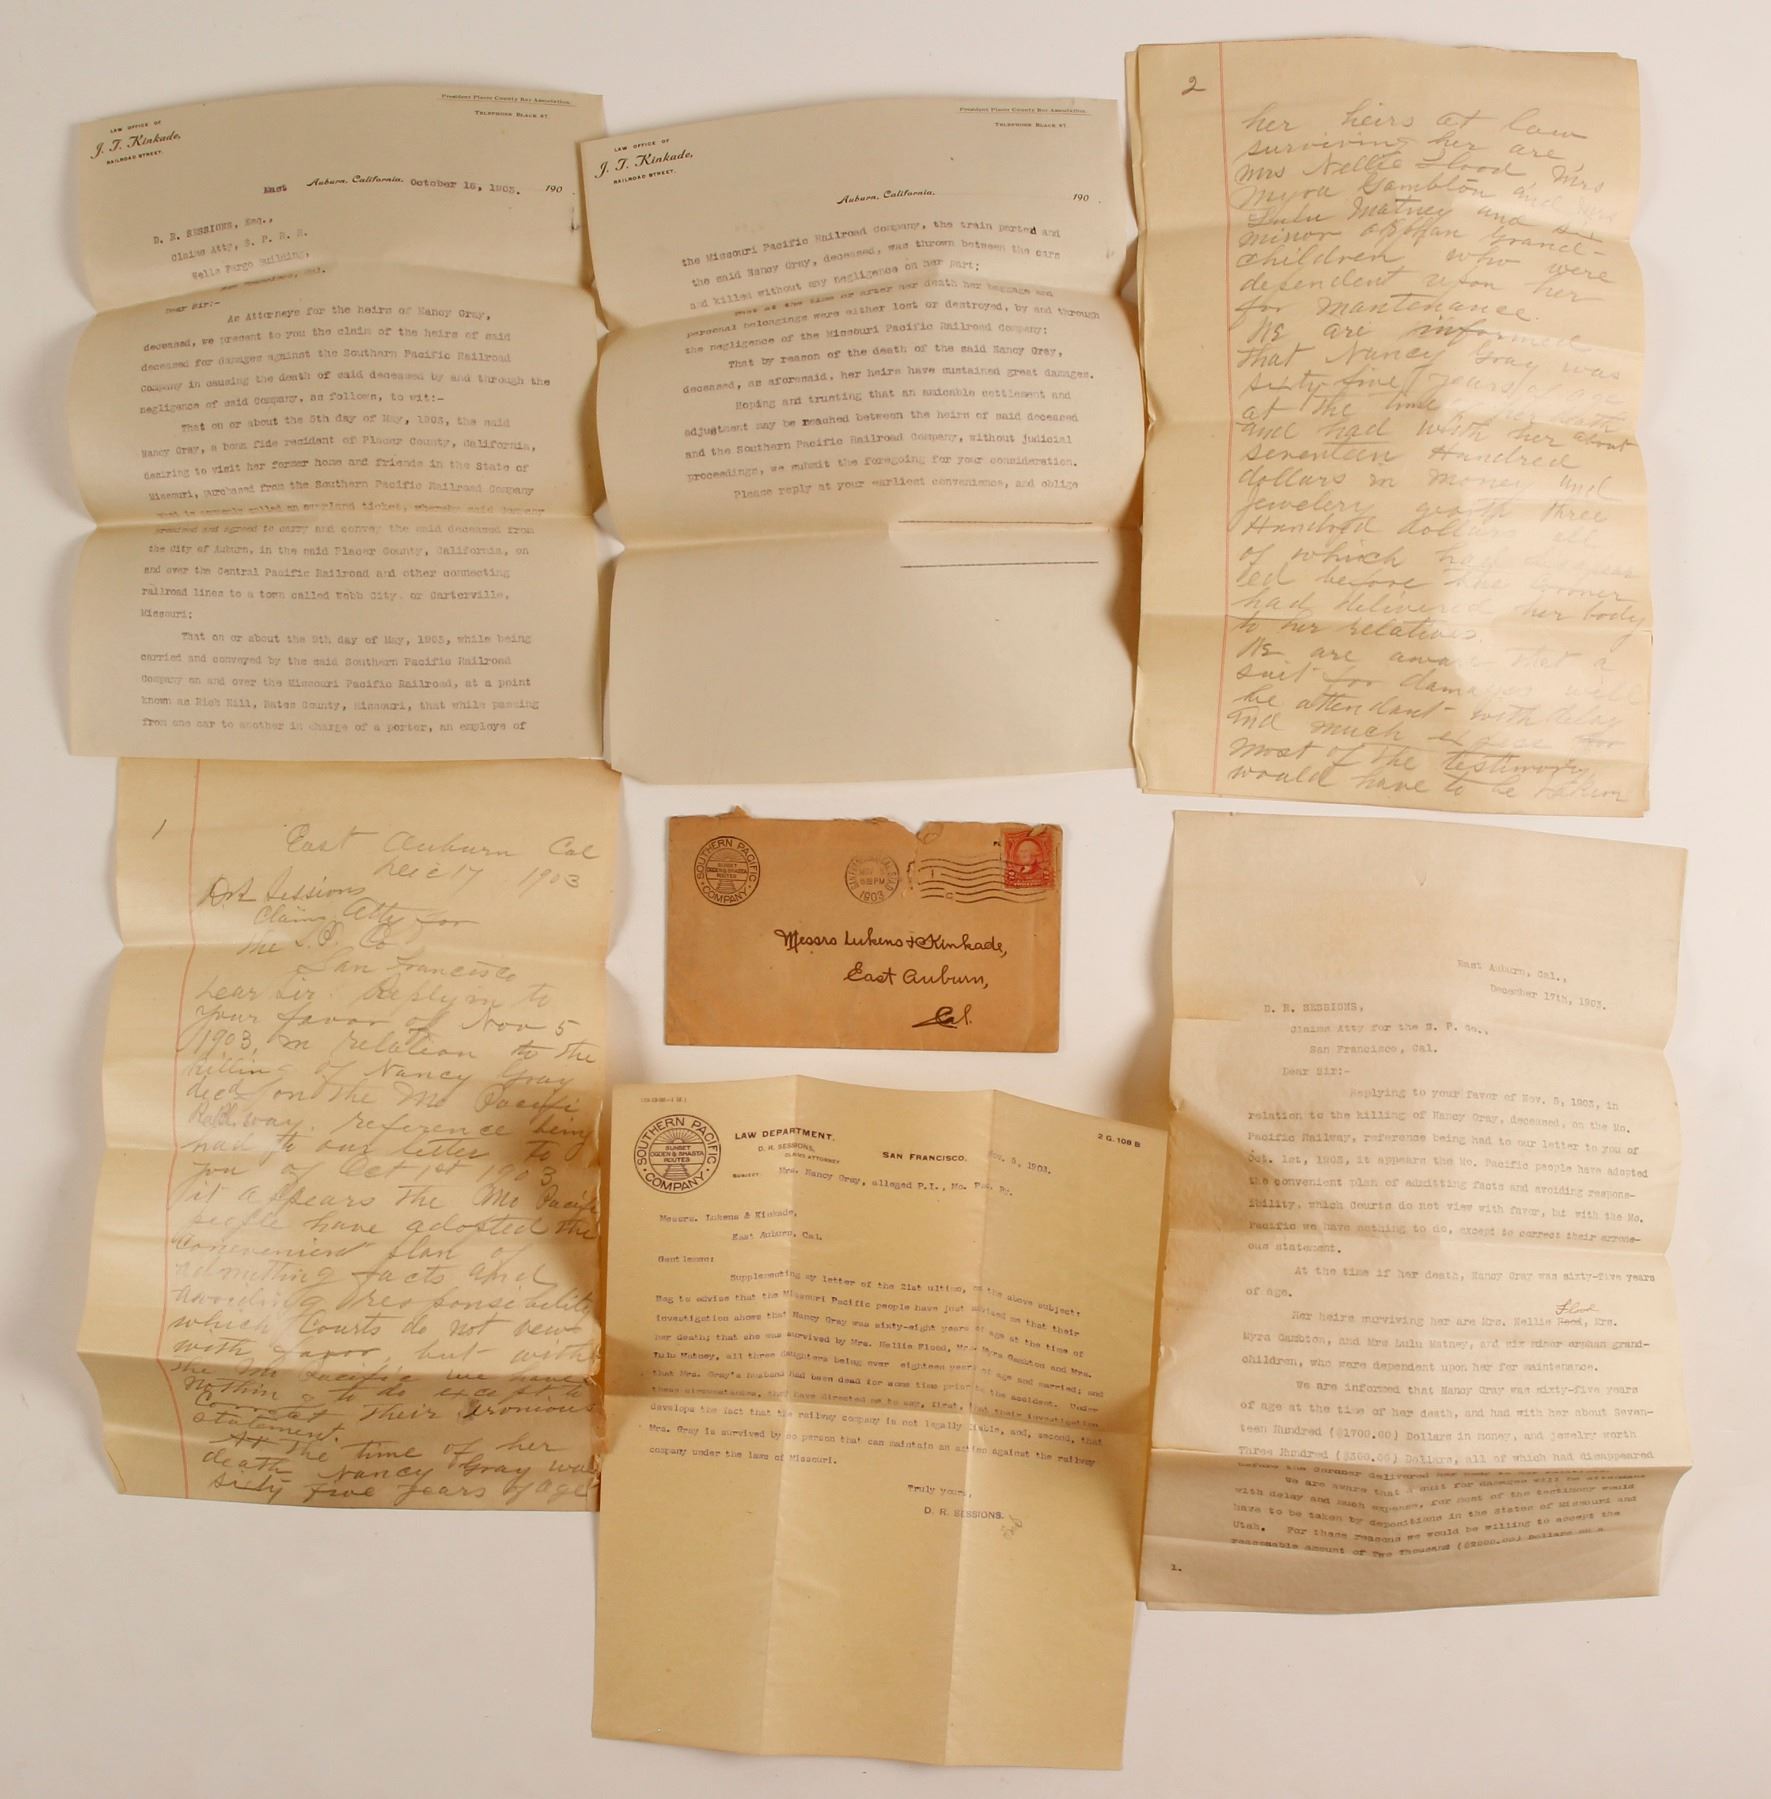 President Placer County Bar Association.
TELEPHONE BLACK 47
LAW OFFICE OF
J. T. Kinkade,
RAILROAD STREET.
East Auburn, California, October 16, 1903. 190
D. R. SESSIONS, Esq.,
Claims Atty, S. P. R. R.
Wells Fargo Building,
San Francisco, Cal.
Dear Sir:-
As Attorneys for the heirs of Nancy Gray,
deceased, we present to you the claim of the heirs of said
deceased for damages against the Southern Pacific Railroad
Company in causing the death of said deceased by and through the
negligence of said Company, as follows, to wit:-
That on or about the 5th day of May, 1903, the said
Nancy Gray, a bona fide resident of Placer County, California,
desiring to visit her former home and friends in the State of
Missouri, purchased from the Southern Pacific Railroad Company
what is commonly called an overland ticket, whereby said Company
promised and agreed to carry and convey the said deceased from
the City of Auburn, in the said Placer County, California, on
and over the Central Pacific Railroad and other connecting
railroad lines to a town called Webb City, or Carterville,
Missouri;
That on or about the 9th day of May, 1903, while being
carried and conveyed by the said Southern Pacific Railroad
Company on and over the Missouri Pacific Railroad, at a point
known as Rich Hill, Bates County, Missouri, that while passing
from one car to another in charge of a porter, an employe of
President Placer County Bar Association.
TELEPHONE BLACK 47
LAW OFFICE OF
J. T. Kinkade,
RAILROAD STREET.
Auburn, California, 190
the Missouri Pacific Railroad Company, the train parted and
the said Nancy Gray, deceased, was thrown between the cars
and killed without any negligence on her part;
That at the time or after her death her baggage and
personal belongings were either lost or destroyed, by and through
the negligence of the Missouri Pacific Railroad Company;
That by reason of the death of the said Nancy Gray,
deceased, as aforesaid, her heirs have sustained great damages.
Hoping and trusting that an amicable settlement and
adjustment may be reached between the heirs of said deceased
and the Southern Pacific Railroad Company, without judicial
proceedings, we submit the foregoing for your consideration.
Please reply at your earliest convenience, and oblige
2
her heirs at law
surviving her are
Mrs Nellie Flood Mrs
Myra Gambton and Mrs
Lulu Matney and six
minor orphan grand-
children who were
dependent upon her
for mantenance.
We are informed
that Nancy Gray was
sixty-five years of age
at the time of her death
and had with her about
seventeen Hundred
dollars in money and
jewelery worth three
Hundred dollars all
of which had disappear
ed before the Corner
had delivered her body
to her relatives.
We are aware that a
suit for damages will
be attendant with delay
and much expence for
most of the testimony
would have to be taken
1
East Auburn Cal
Dec 17 1903
D R Sessions
Claims Atty for
the S. P. Co
San Francisco
Dear Sir: Replying to
your favor of Nov 5
1903, in relation to the
killing of Nancy Gray
decd on the Mo Pacific
Railway. reference being
had to our letter to
you of Oct 1st 1903
it appears the Mo Pacific
people have adopted the
convenient plan of
admitting facts and
avoiding responsibility
which Courts do not view
with favor, but with
the Mo Pacific we have
nothing to do except to
correct their eronious
statement.
At the time of her
death Nancy Gray was
sixty five years of age
SOUTHERN PACIFIC COMPANY
SUNSET
OGDEN & SHASTA
ROUTES
1903
Messrs Lukens & Kinkade,
East Auburn,
Cal.
SOUTHERN PACIFIC COMPANY
SUNSET
OGDEN & SHASTA
ROUTES
LAW DEPARTMENT.
D. R. SESSIONS,
CLAIMS ATTORNEY
SAN FRANCISCO, Nov. 5, 1903.
2 G. 108 B
SUBJECT: Mrs. Nancy Gray, alleged P.I., Mo. Pac. Ry.
Messrs. Lukens & Kinkade,
East Auburn, Cal.
Gentlemen:
Supplementing my letter of the 21st ultimo, on the above subject:
Beg to advise that the Missouri Pacific people have just advised me that their
investigation shows that Nancy Gray was sixty-eight years of age at the time of
her death; that she was survived by Mrs. Nellie Flood, Mrs. Myra Gambton and Mrs.
Lulu Matney, all three daughters being over eighteen years of age and married; and
that Mrs. Gray's husband had been dead for some time prior to the accident. Under
these circumstances, they have directed me to say, first, that their investigation
develops the fact that the railway company is not legally liable, and, second, that
Mrs. Gray is survived by no person that can maintain an action against the railway
company under the laws of Missouri.
Truly yours,
D. R. SESSIONS.
East Auburn, Cal.,
December 17th, 1903.
D. R. SESSIONS,
Claims Atty for the S. P. Co.,
San Francisco, Cal.
Dear Sir:-
Replying to your favor of Nov. 5, 1903, in
relation to the killing of Nancy Gray, deceased, on the Mo.
Pacific Railway, reference being had to our letter to you of
Oct. 1st, 1903, it appears the Mo. Pacific people have adopted
the convenient plan of admitting facts and avoiding respons-
ibility, which Courts do not view with favor, but with the Mo.
Pacific we have nothing to do, except to correct their errone-
ous statement.
At the time if her death, Nancy Gray was sixty-five years
of age.
Flood
Her heirs surviving her are Mrs. Nellie Hood, Mrs.
Myra Gambton, and Mrs Lulu Matney, and six minor orphan grand-
children, who were dependent upon her for maintenance.
We are informed that Nancy Gray was sixty-five years
of age at the time of her death, and had with her about Seven-
teen Hundred ($1700.00) Dollars in money, and jewelry worth
Three Hundred ($300.00) Dollars, all of which had disappeared
before the Coroner delivered her body to her relatives.
We are aware that a suit for damages will be attendant
with delay and much expense, for most of the testimony would
have to be taken by depositions in the States of Missouri and
Utah. For these reasons we would be willing to accept the
reasonable amount of Two Thousand ($2000.00) Dollars as a
1.